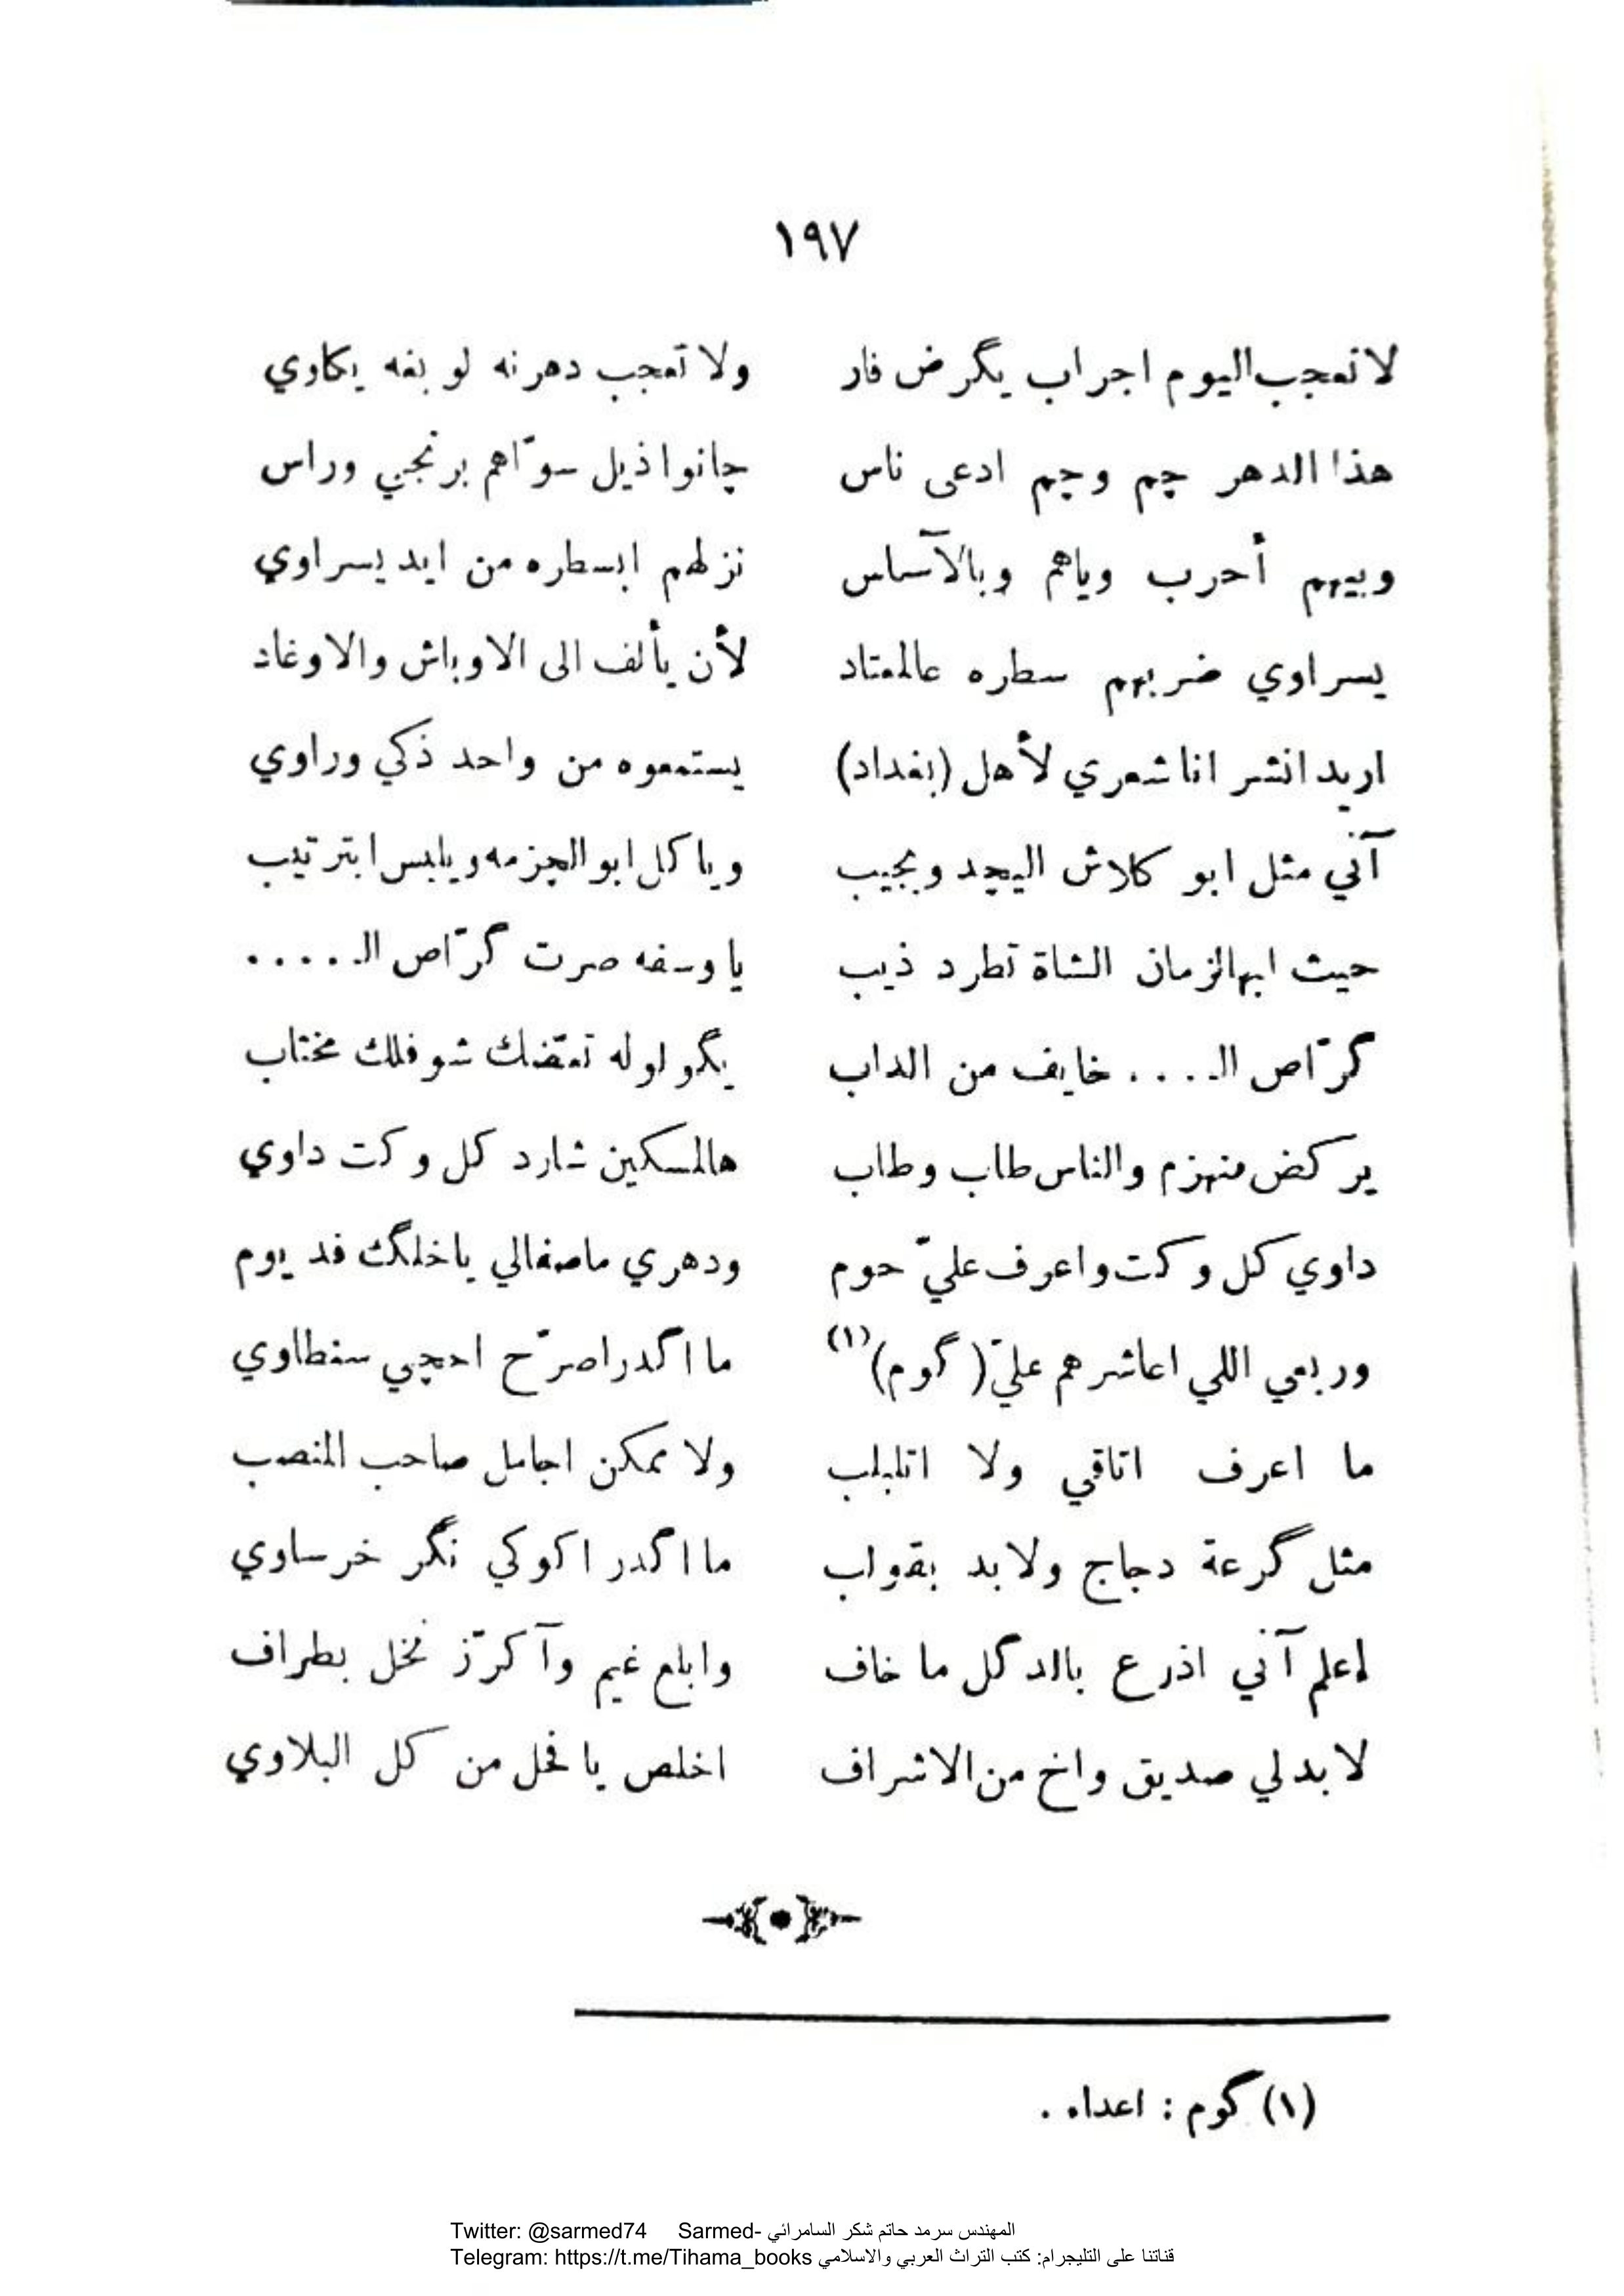 ١٩٧
لا تعجب اليوم اجراب يگرض فار ولا تعجب دهرنه لو بغه يكاوي
هذا الدهر چم وچم ادعى ناس چانوا ذيل سوّاهم برنجي وراس
وبيهم أحرب وياهم وبالآساس نزلهم ابسطره من ايد يسراوي
يسراوي ضربهم سطره عالمعتاد لأن يألف الى الاوباش والاوغاد
اريد انشر انا شعري لأهل (بغداد) يستمعوه من واحد ذكي وراوي
آني مثل ابو كلاش اليچد ويجيب وياكل ابو الجزمه ويلبس ابترتيب
حيث ابهالزمان الشاة تطرد ذيب يا وسفه صرت گرّاص الـ.....
گرّاص الـ.... خايف من الداب يگولوله تعضّك شوفلك مختاب
يركض منهزم والناس طاب وطاب هالمسكين شارد كل وكت داوي
داوي كل وكت واعرف عليّ حوم ودهري ماصفالي ياخلگ فد يوم
وربعي اللي اعاشرهم عليّ (گوم) (١) ما اگدر اصرّح احچي سنطاوي
ما اعرف اتاقي ولا اتلبلب ولا يمكن اجامل صاحب المنصب
مثل گرعة دجاج ولابد بقولب ما اگدر اكوكي نگر خرساوي
اعلم آني اذرع بالدگل ما خاف وابلع غيم وآكرّز نخل بطراف
لابد لي صديق واخ من الاشراف اخلص يا فحل من كل البلاوي
(١) گوم : اعداء .
Twitter: @sarmed74 Sarmed- المهندس سرمد حاتم شكر السامرائي
Telegram: https://t.me/Tihama_books قناتنا على التليجرام: كتب التراث العربي والاسلامي